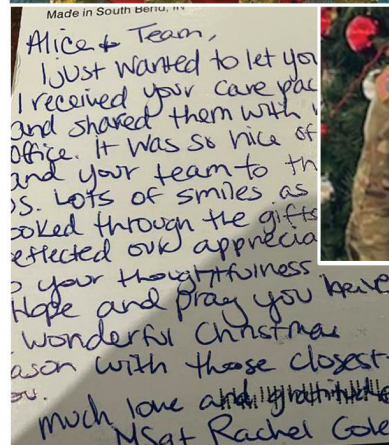 Made in South Bend, IN
Alice & Team,
I just wanted to let you
I received your care pac
and shared them with
office. It was so nice of
and your team to th
s. Lots of smiles as
ooked through the gifts
eflected our apprecia
o your thoughtfulness
Hope and pray you have
wonderful Christmas
ason with those closest
ou.
much love and gratitude
MSgt Rachel Gol